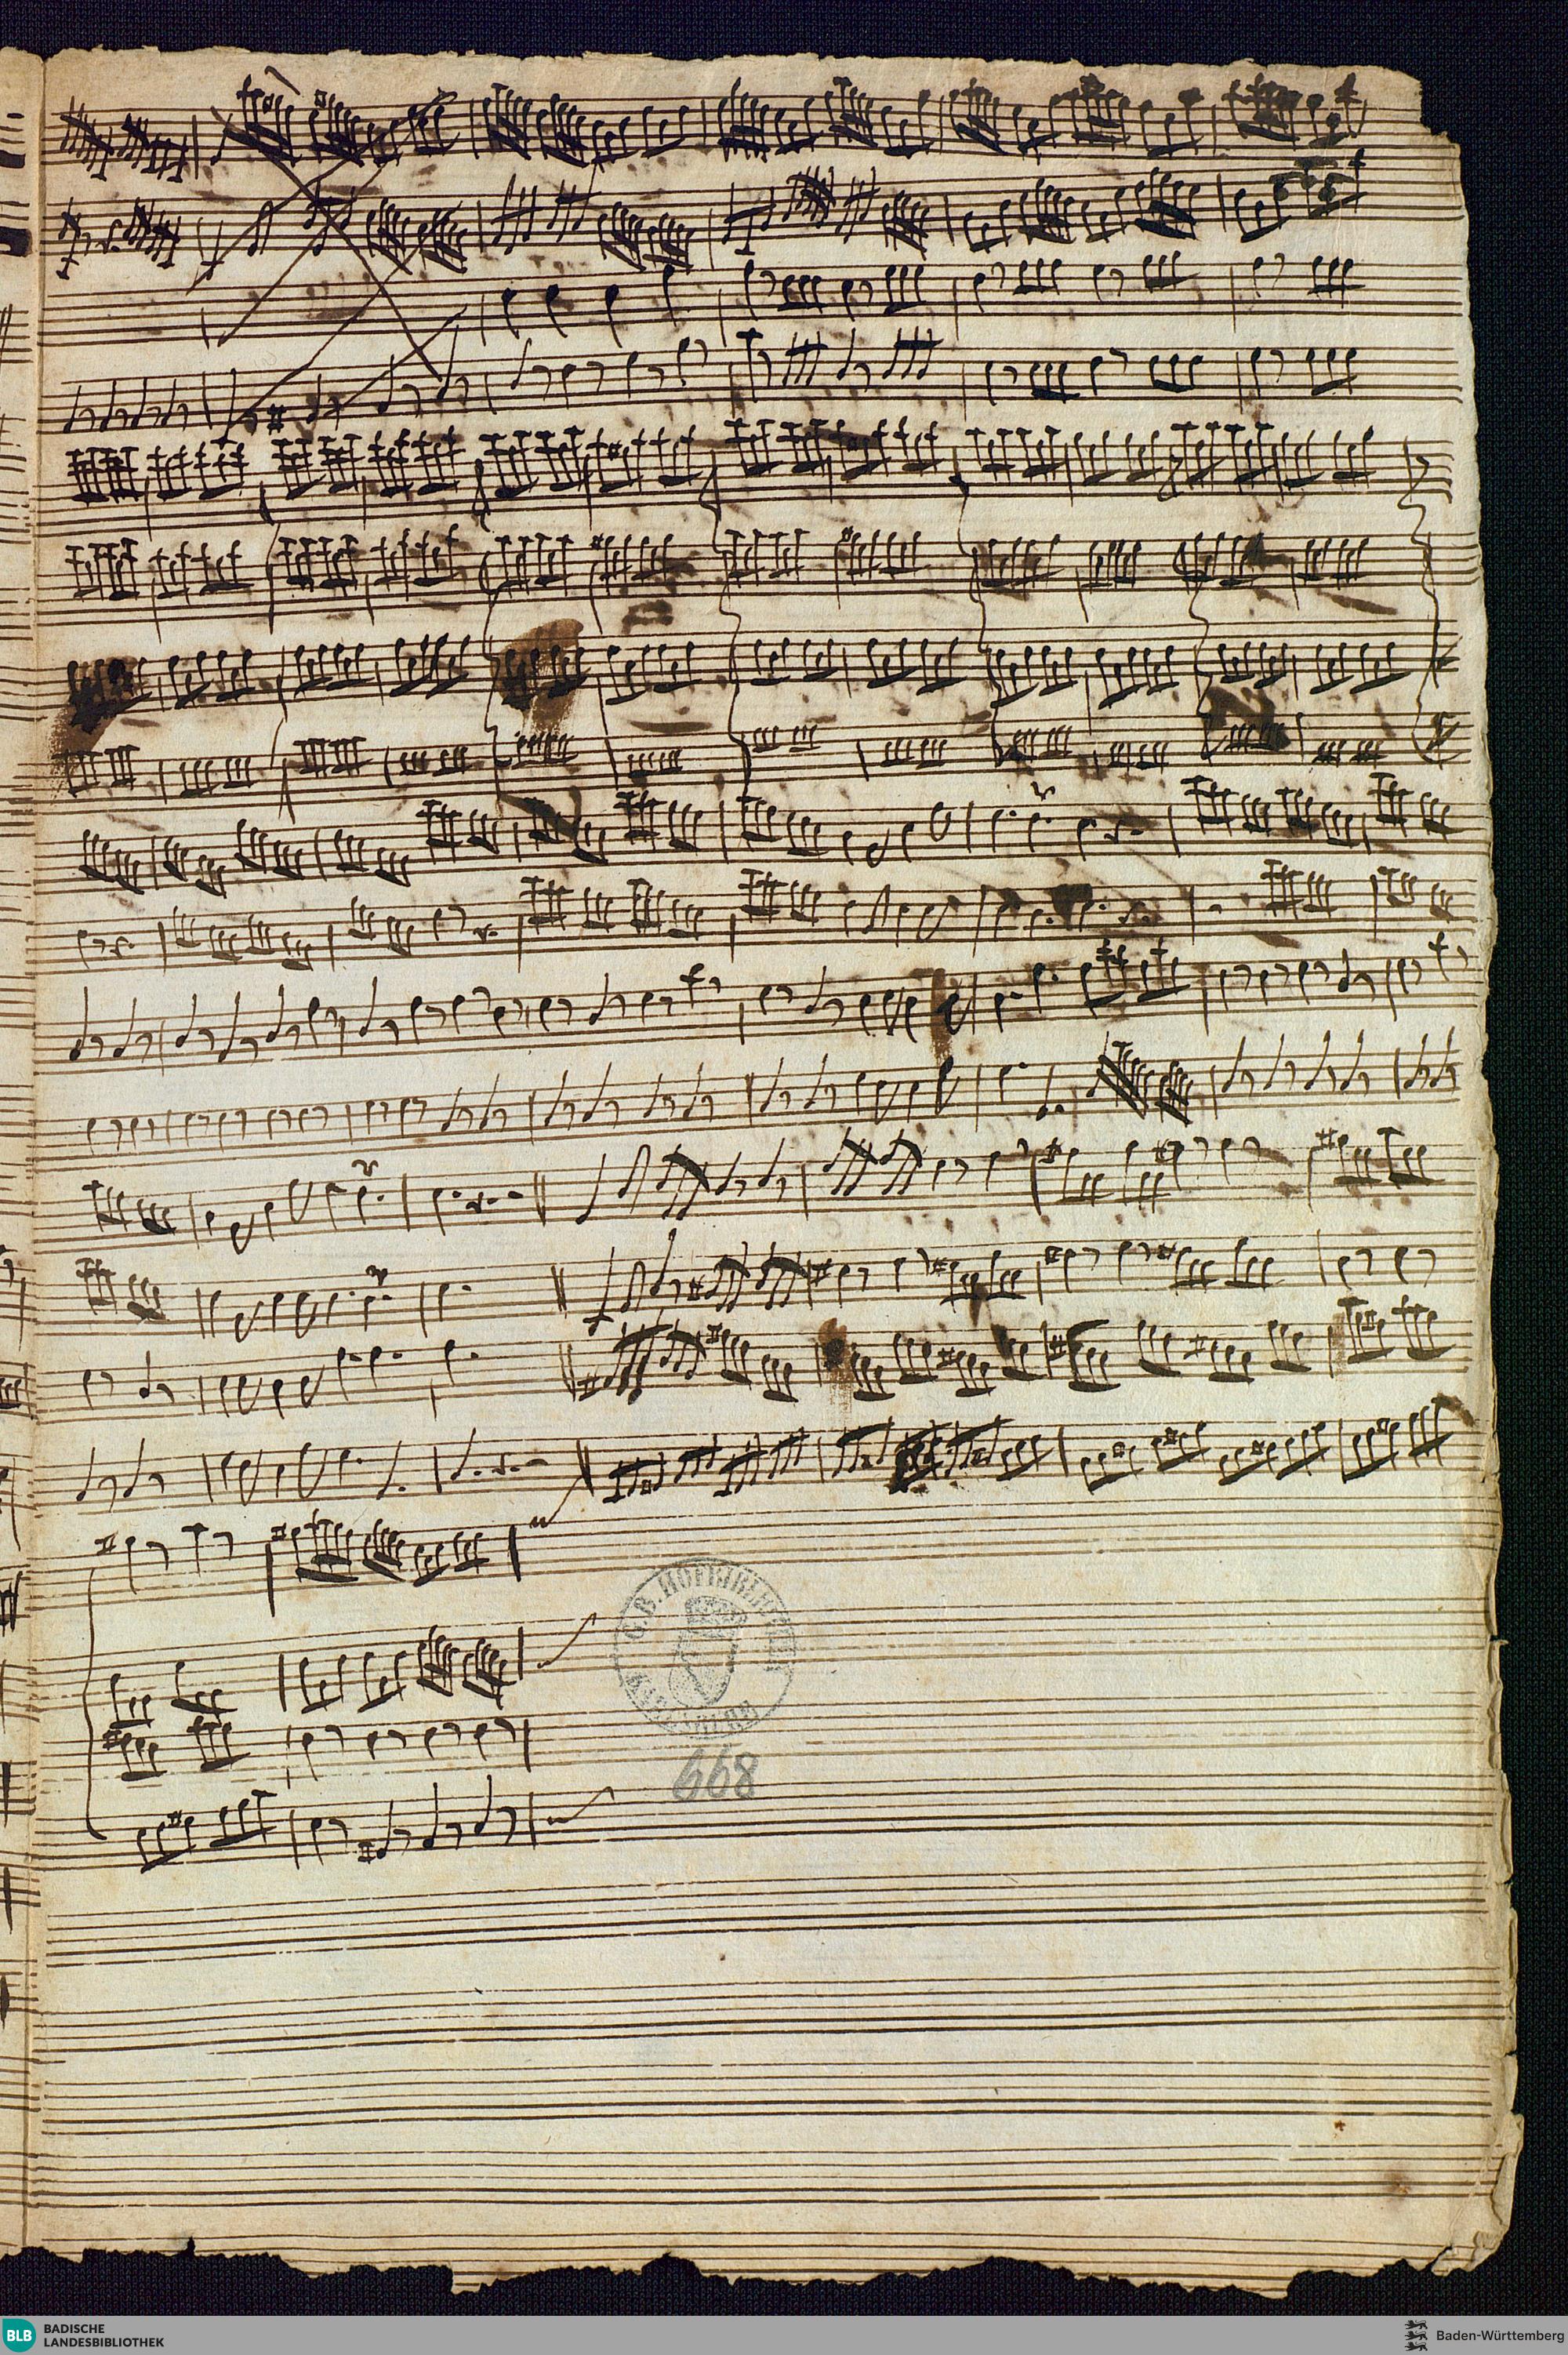 G.B. HOFBIBLIOTHEK
KARLSRUHE
668
BLB BADISCHE
LANDESBIBLIOTHEK
Baden-Württemberg